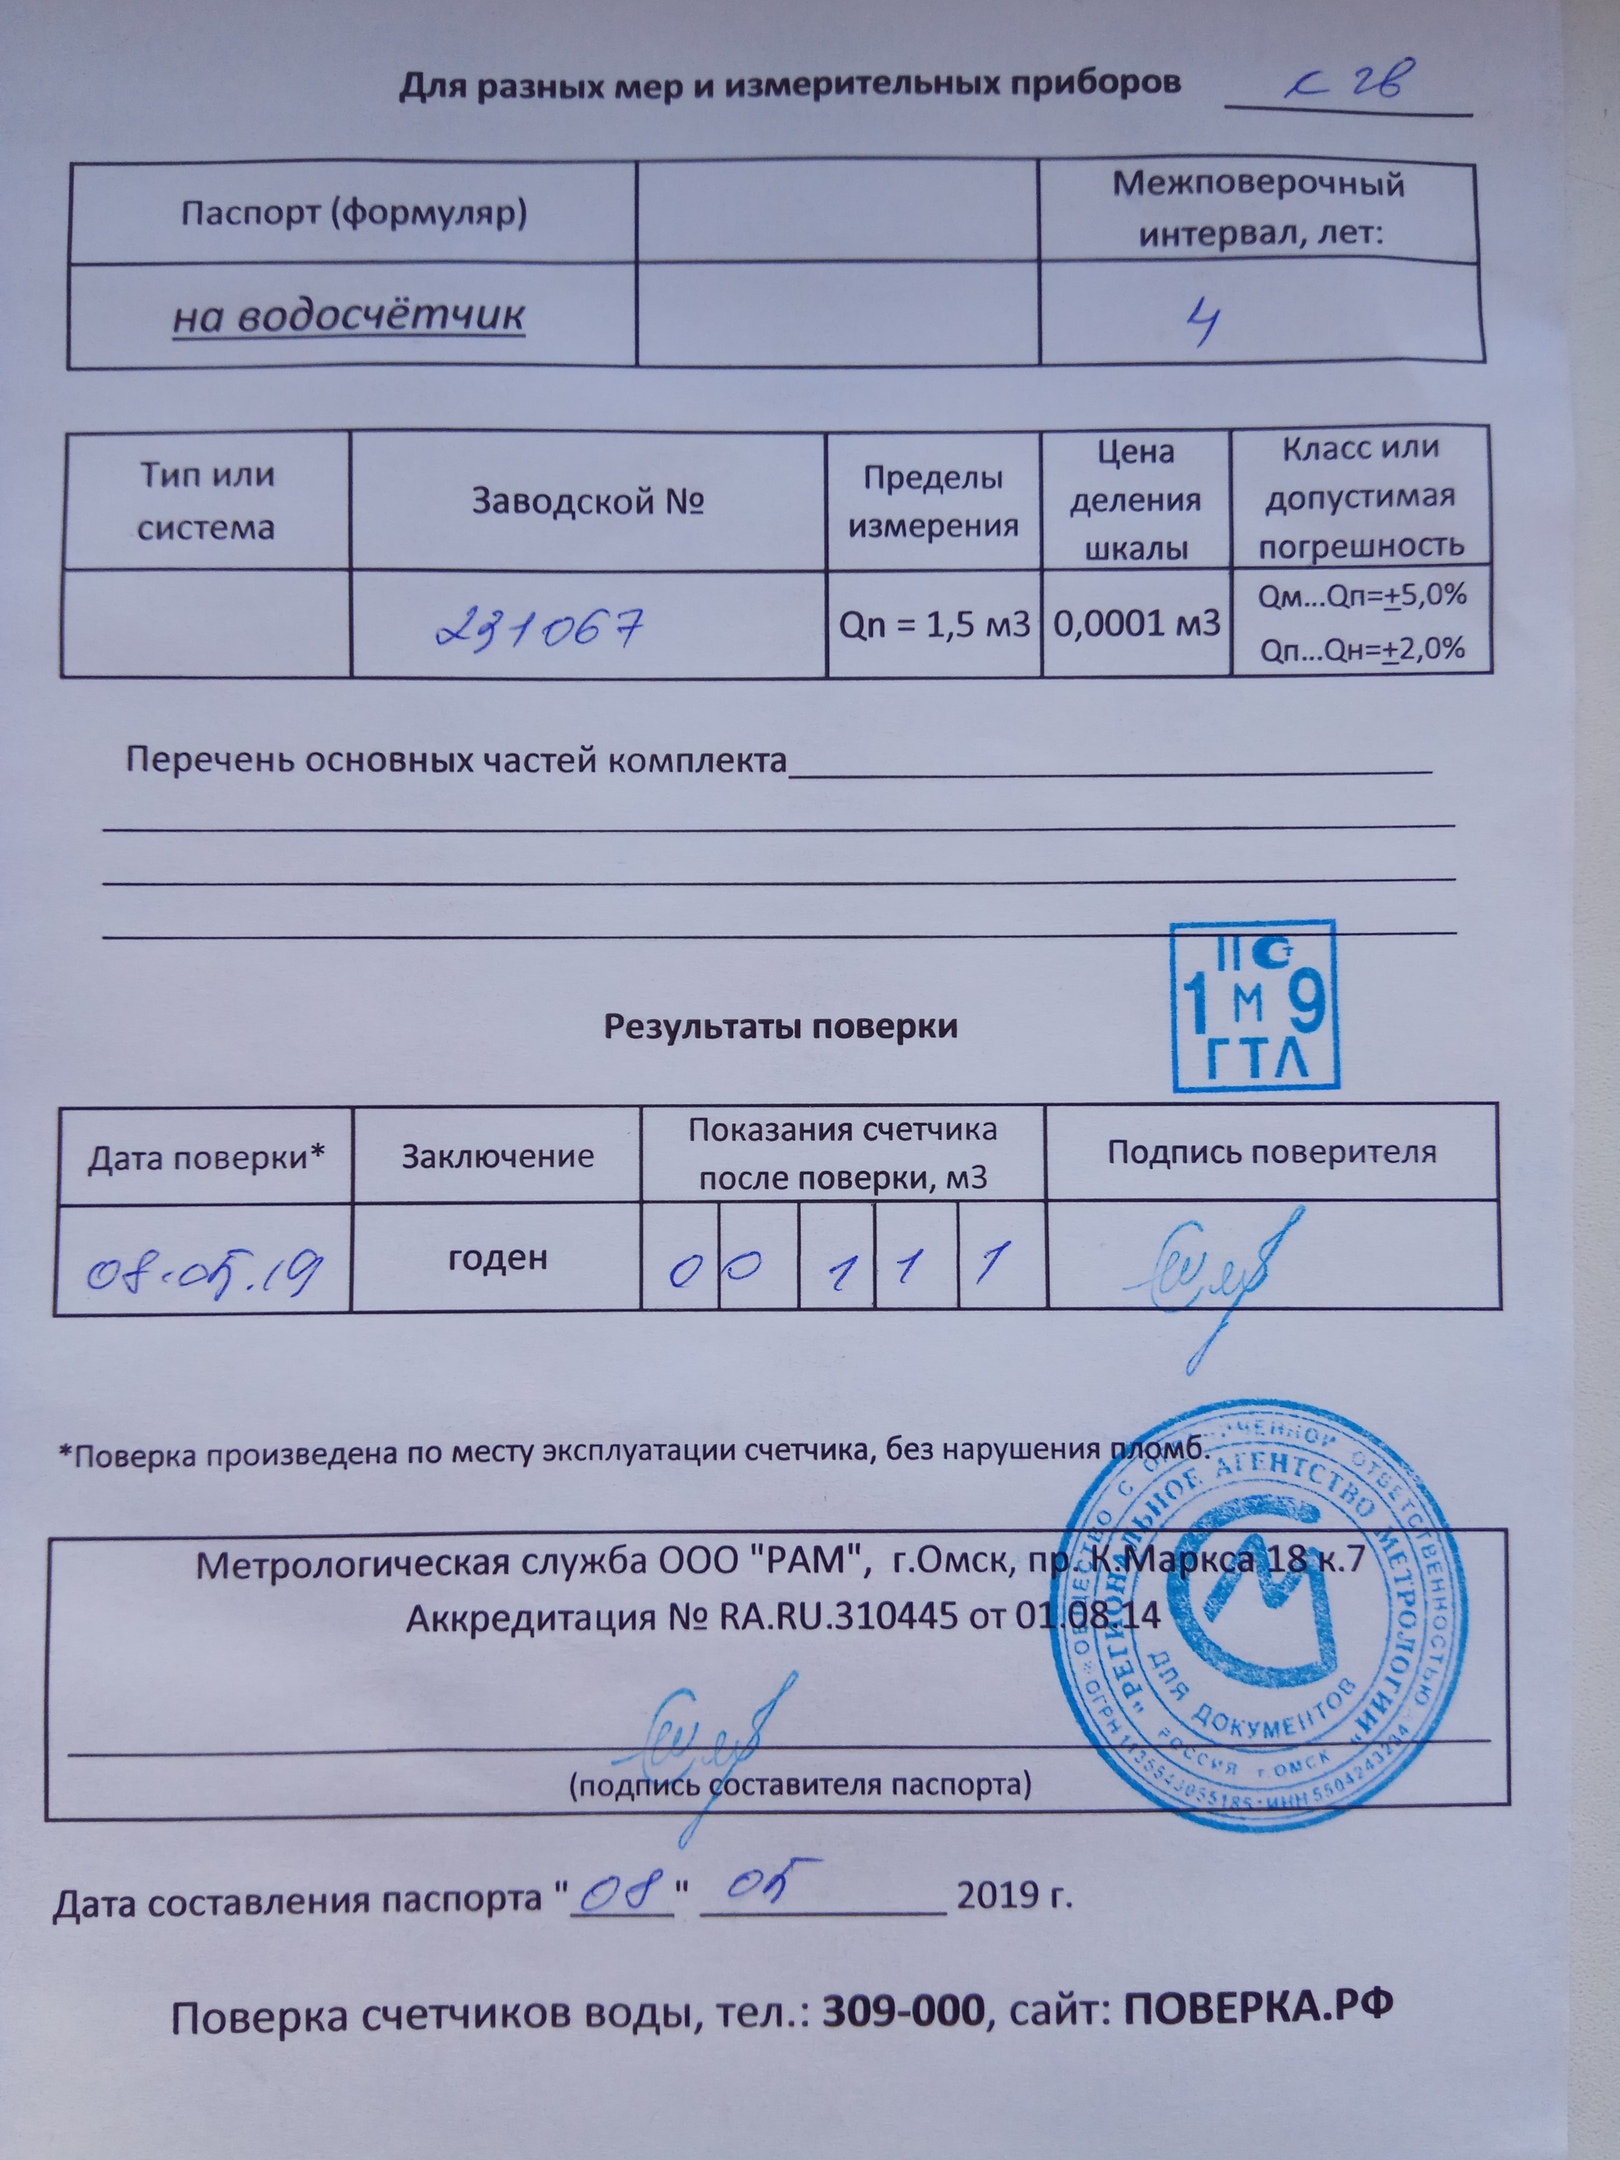 Для разных мер и измерительных приборов к гв
Паспорт (формуляр)
Межповерочный
интервал, лет:
на водосчётчик
4
Тип или
система
Заводской №
Пределы
измерения
Цена
деления
шкалы
Класс или
допустимая
погрешность
231067
Qn = 1,5 м3
0,0001 м3
Qм...Qп=±5,0%
Qп...Qн=±2,0%
Перечень основных частей комплекта
1 М 9
ГТЛ
Результаты поверки
Дата поверки*
Заключение
Показания счетчика
после поверки, м3
Подпись поверителя
08.05.19
годен
0 0 1 1 1
*Поверка произведена по месту эксплуатации счетчика, без нарушения пломб.
Метрологическая служба ООО "РАМ", г.Омск, пр. К.Маркса 18 к.7
Аккредитация № RA.RU.310445 от 01.08.14
(подпись составителя паспорта)
ОБЩЕСТВО С ОГРАНИЧЕННОЙ ОТВЕТСТВЕННОСТЬЮ
"РЕГИОНАЛЬНОЕ АГЕНТСТВО МЕТРОЛОГИИ"
ДЛЯ ДОКУМЕНТОВ
РОССИЯ г.ОМСК
Дата составления паспорта "08" 05 2019 г.
Поверка счетчиков воды, тел.: 309-000, сайт: ПОВЕРКА.РФ